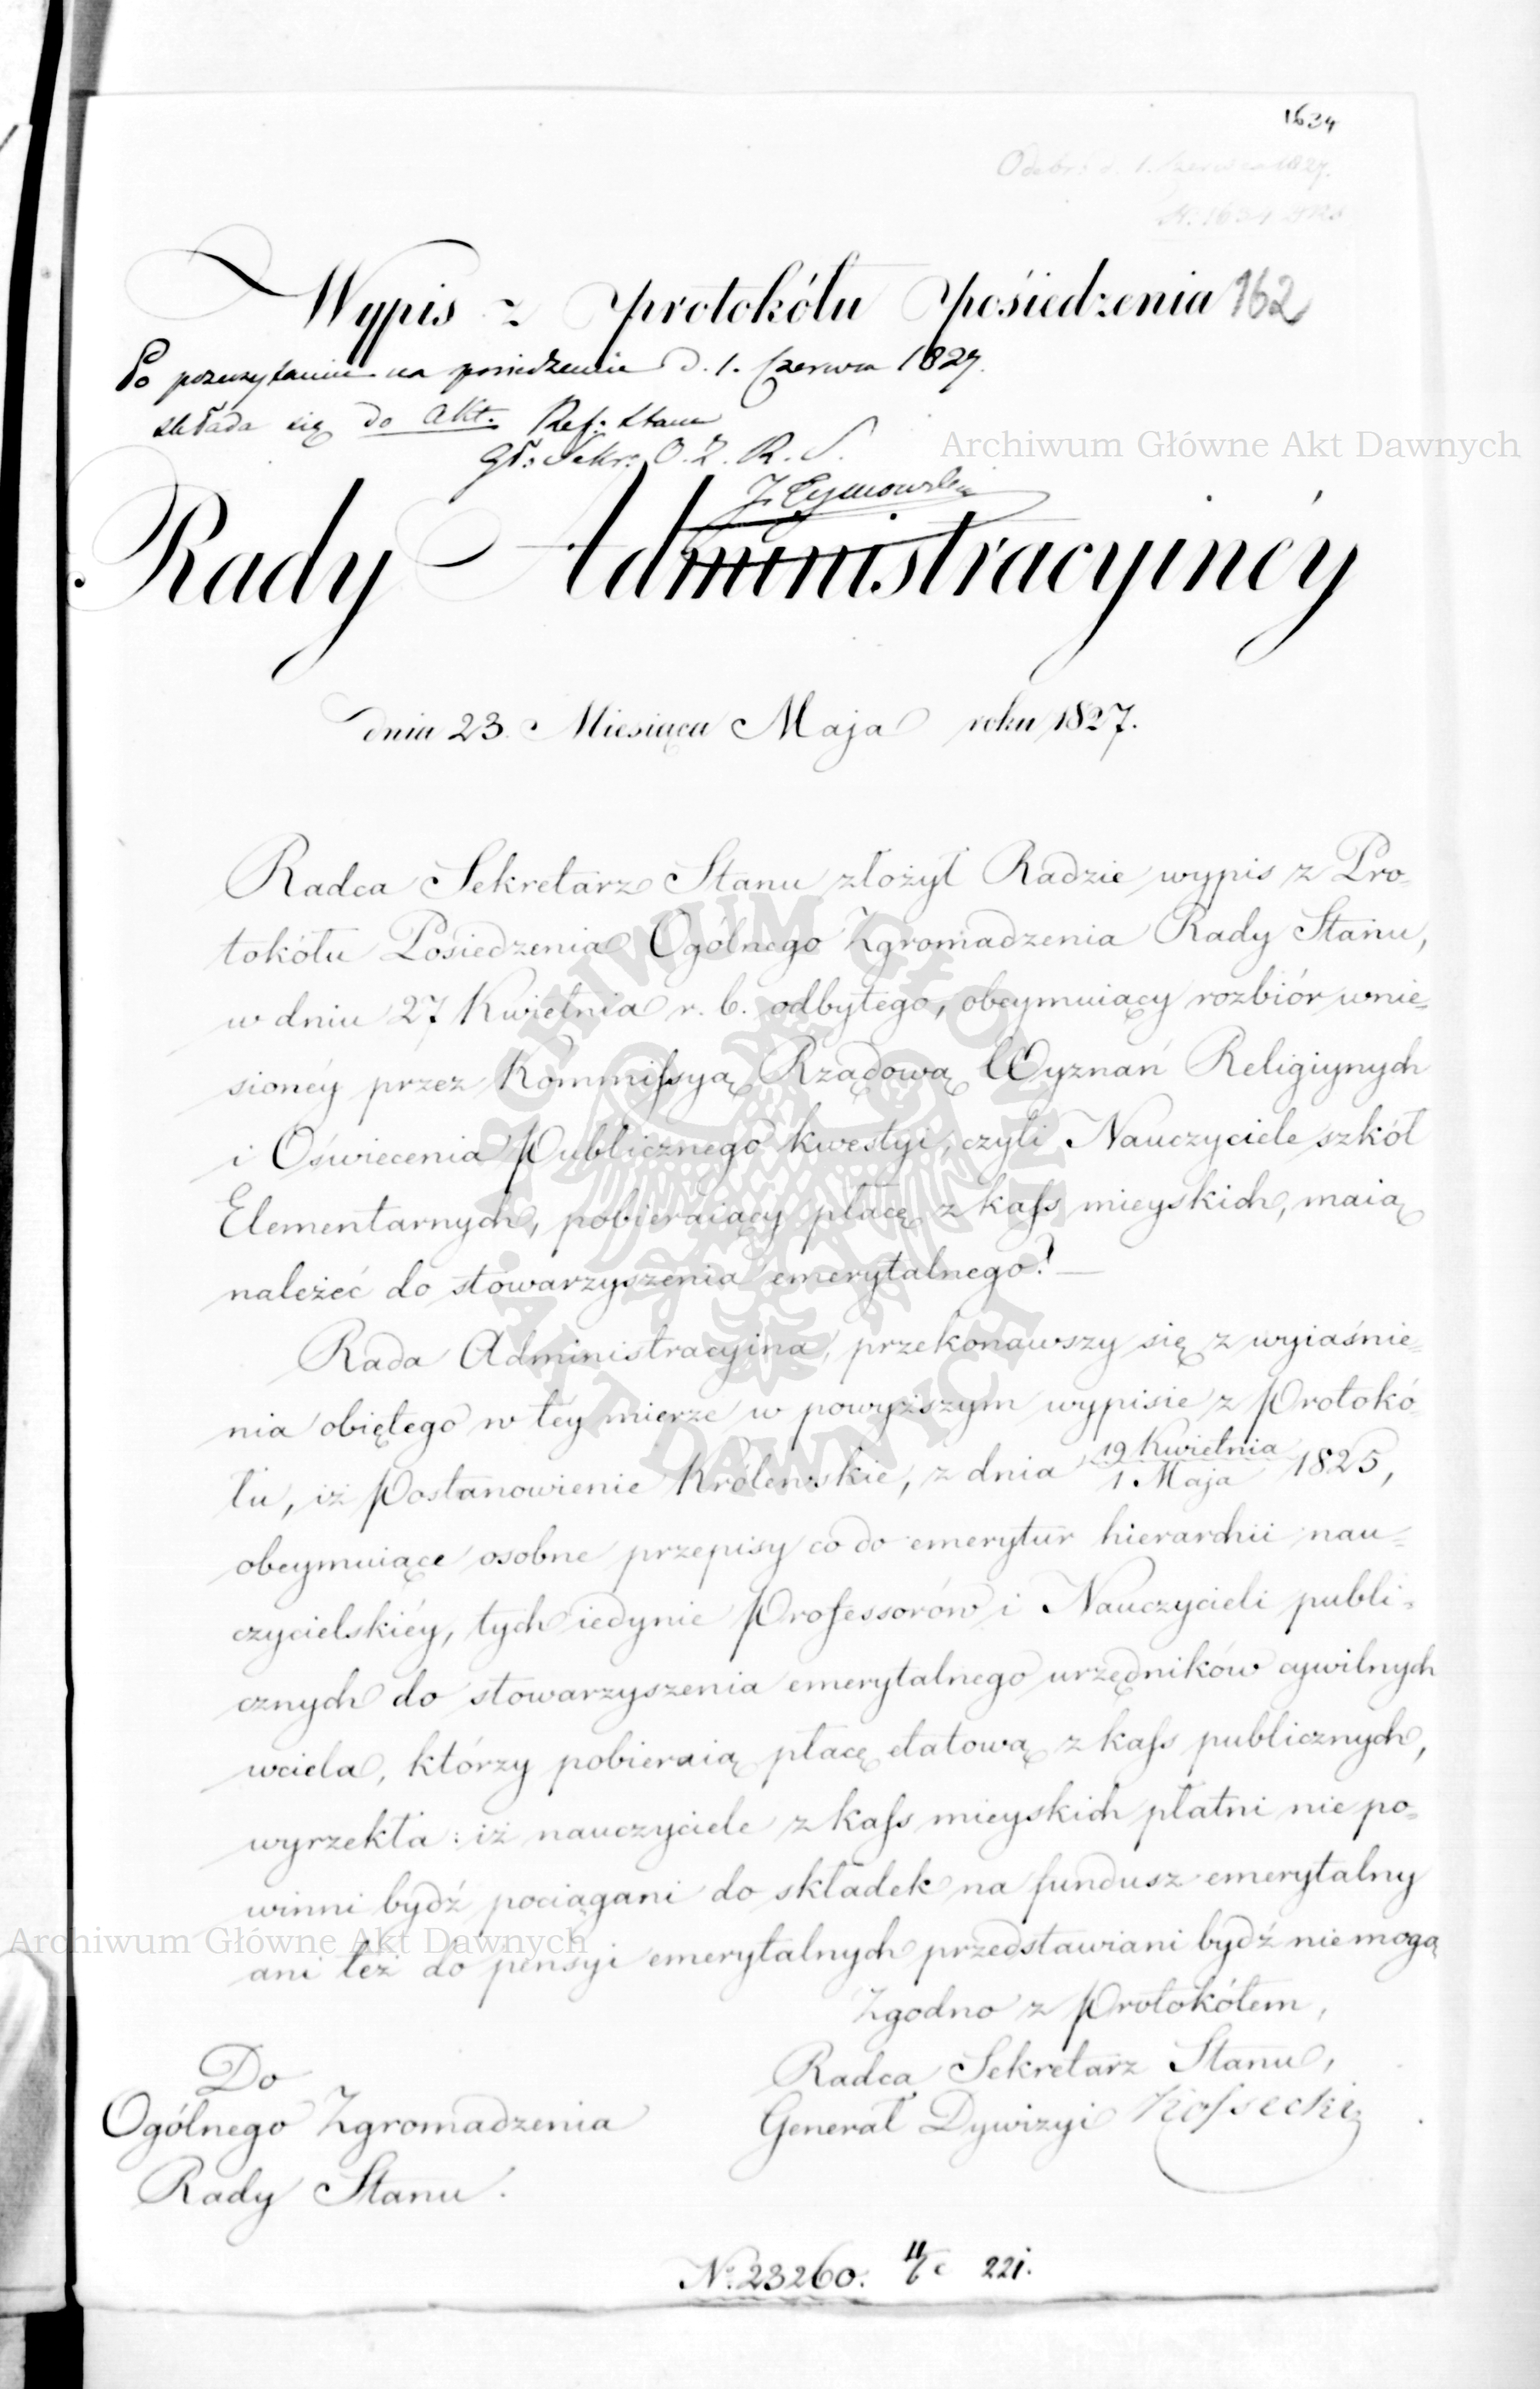 1634
Odebr: d. 1. Czerwca 1827.
N. 1634
Wypis z protokółu posiedzenia 162
Po przeczytaniu na posiedzeniu d. 1. Czerwca 1827.
składa się do Akt. Ref: Stanu
Gł: Sekr: O. Z. R. S.
Archiwum Główne Akt Dawnych
Rady Administracyinéy
dnia 23. Miesiąca Maja roku 1827.
Radca Sekretarz Stanu złożył Radzie wypis z Pro-
tokółu Posiedzenia Ogólnego Zgromadzenia Rady Stanu,
w dniu 27 Kwietnia r. b. odbytego, obeymuiący rozbiór wnie-
sionéy przez Kommissyą Rządową Wyznań Religiynych
i Oświecenia Publicznego kwestyi, czyli Nauczyciele szkół
Elementarnych, pobieraiący płacę z kass mieyskich, maią
należeć do stowarzyszenia emerytalnego? —
Rada Administracyina, przekonawszy się z wyiaśnie-
nia obiętego w téy mierze w powyższym wypisie z Protokó-
łu, iż Postanowienie Królewskie, z dnia 19 Kwietnia / 1 Maja 1825,
obeymuiące osobne przepisy co do emerytur hierarchii nau-
czycielskiéy, tych iedynie Professorów i Nauczycieli publi-
cznych do stowarzyszenia emerytalnego urzędników cywilnych
wciela, którzy pobieraią płacę etatową z kass publicznych,
wyrzekła: iż nauczyciele z kass mieyskich płatni nie po-
winni bydź pociągani do składek na fundusz emerytalny
Archiwum Główne Akt Dawnych
ani też do pensyi emerytalnych przedstawiani bydź nie mogą
Zgodno z Protokółem,
Radca Sekretarz Stanu,
Generał Dywizyi Kossecki
Do
Ogólnego Zgromadzenia
Rady Stanu.
N. 23260. 221.
ARCHIWUM GŁÓWNE AKT DAWNYCH